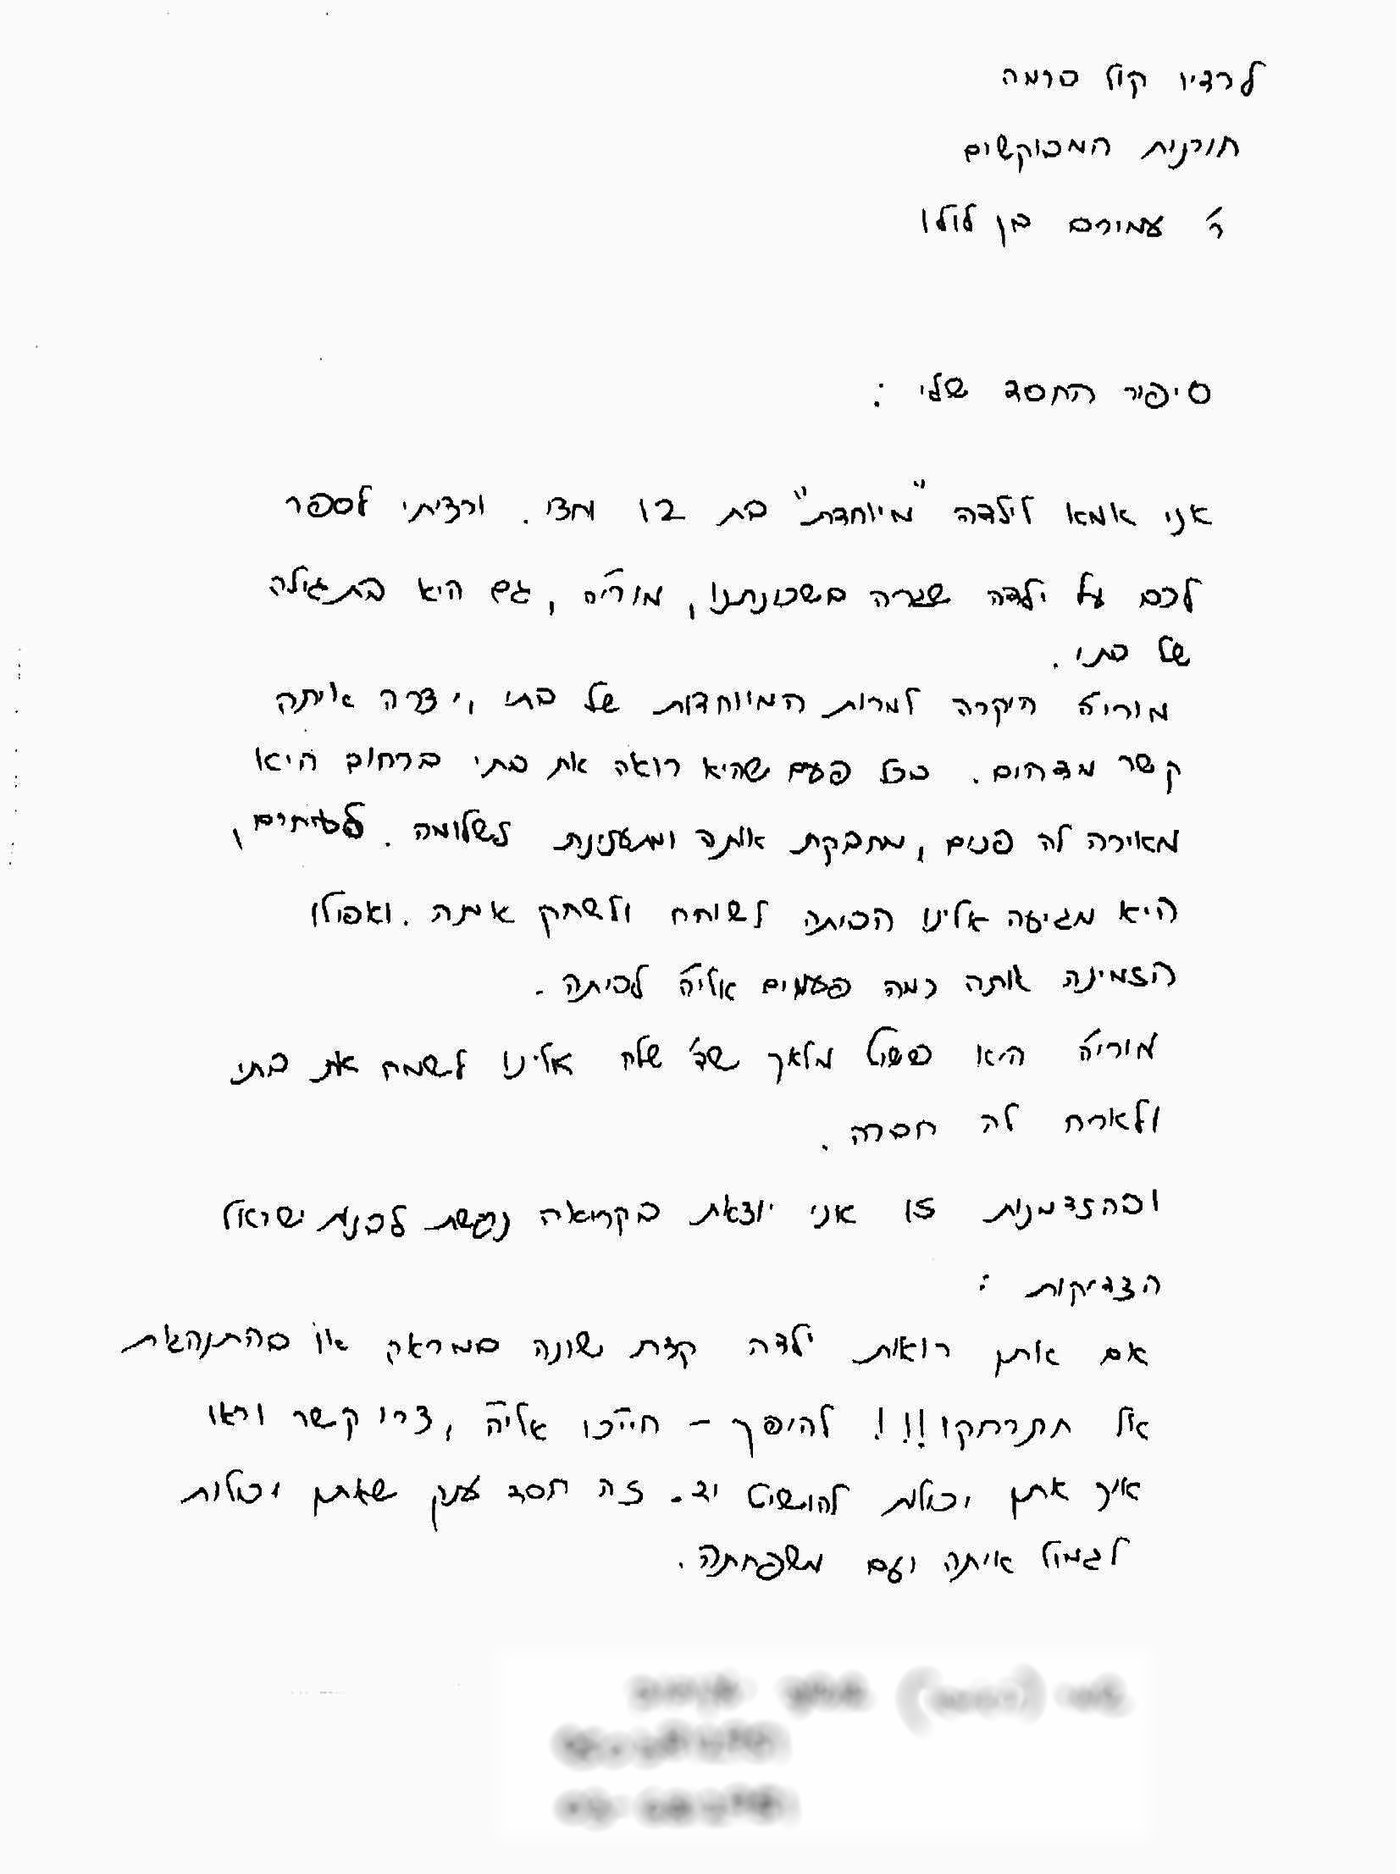 לרדיו קול ברמה
תורנית המבוקשים
ר' עמירם בן לולו
סיפור החסד שלי :
אני אמא לילדה "מיוחדת" בת 12 וחצי. ורציתי לספר
לכם על ילדה שגרה בשכונתנו, מורי'ה, גם היא בת גילה
של בתי.
מורי'ה היקרה למרות המיוחדות של בתי, יצרה איתה
קשר מדהים. בכל פעם שהיא רואה את בתי ברחוב היא
מאירה לה פנים, מחבקת אותה ומתענינת לשלומה. לפעמים,
היא מגיעה אלינו הביתה לשוחח ולשחק איתה. ואפילו
הזמינה אותה כמה פעמים אלי'ה לביתה.
מורי'ה היא פשוט מלאך שה' שלח אלינו לשמח את בתי
ולארח לה חברה.
ובהזדמנות זו אני יוצאת בקריאה נרגשת לבנות ישראל
הצדיקות :
אם אתן רואות ילדה קצת שונה במראה או בהתנהגות
אל תתרחקו!!! להיפך - חייכו אלי'ה, צרו קשר וראו
איך אתן יכולות להושיט יד. זה חסד ענק שאתן יכולות
לגמול איתה ועם משפחתה.